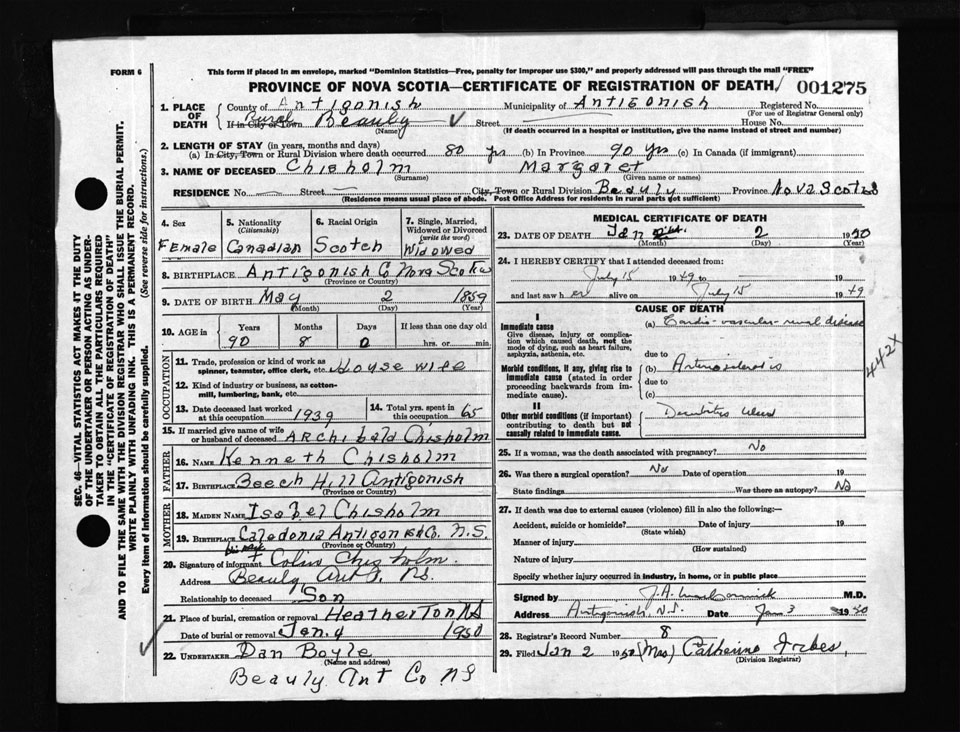 FORM 6
This form if placed in an envelope, marked "Dominion Statistics—Free, penalty for improper use $300," and properly addressed will pass through the mail "FREE"
PROVINCE OF NOVA SCOTIA—CERTIFICATE OF REGISTRATION OF DEATH 001275
1. PLACE OF DEATH County of Antigonish Municipality of Antigonish Registered No.
(For use of Registrar General only)
If in City or Town Rural Beauly Street House No.
(Name) (If death occurred in a hospital or institution, give the name instead of street and number)
2. LENGTH OF STAY (in years, months and days)
(a) In City, Town or Rural Division where death occurred 80 yrs (b) In Province 90 Yrs (c) In Canada (if immigrant)
3. NAME OF DECEASED Chisholm Margaret
(Surname) (Given name or names)
RESIDENCE No. Street City, Town or Rural Division Beauly Province Nova Scotia
(Residence means usual place of abode. Post Office Address for residents in rural parts not sufficient)
4. Sex
Female
5. Nationality
(Citizenship)
Canadian
6. Racial Origin
Scotch
7. Single, Married, Widowed or Divorced
(write the word)
Widowed
8. BIRTHPLACE Antigonish Co Nova Scotia
(Province or Country)
9. DATE OF BIRTH May 2 1859
(Month) (Day) (Year)
10. AGE in Years Months Days If less than one day old
90 8 0 hrs. or min.
OCCUPATION
11. Trade, profession or kind of work as
spinner, teamster, office clerk, etc. House wife
12. Kind of industry or business, as cotton-
mill, lumbering, bank, etc.
13. Date deceased last worked
at this occupation 1939
14. Total yrs. spent in
this occupation 65
15. If married give name of wife
or husband of deceased Archibald Chisholm
FATHER
16. NAME Kenneth Chisholm
17. BIRTHPLACE Beech Hill Antigonish
(Province or Country)
MOTHER
18. MAIDEN NAME Isabel Chisholm
19. BIRTHPLACE Caledonia Antigonish Co. N.S.
(Province or Country)
20. Signature of informant Colin Chisholm
Address Beauly Ant Co. NS.
Relationship to deceased Son
21. Place of burial, cremation or removal Heatherton NS
Date of burial or removal Jan. 4 1950
22. UNDERTAKER Dan Boyle
(Name and address)
Beauly Ant Co NS
MEDICAL CERTIFICATE OF DEATH
23. DATE OF DEATH Jan 2 1950
(Month) (Day) (Year)
24. I HEREBY CERTIFY that I attended deceased from:
July 15 1949 to 19
and last saw her alive on July 15 1949
CAUSE OF DEATH
I
Immediate cause
Give disease, injury or complication which caused death, not the mode of dying, such as heart failure, asphyxia, asthenia, etc.
(a) Cardio-vascular-renal disease
due to
Morbid conditions, if any, giving rise to immediate cause (stated in order proceeding backwards from immediate cause).
(b) Arteriosclerosis
due to
(c)
442X
II
Other morbid conditions (if important) contributing to death but not causally related to immediate cause.
Decubitus Ulcer
25. If a woman, was the death associated with pregnancy? No
26. Was there a surgical operation? No Date of operation 19
State findings Was there an autopsy? No
27. If death was due to external causes (violence) fill in also the following:—
Accident, suicide or homicide? Date of injury 19
(State which)
Manner of injury
(How sustained)
Nature of injury
Specify whether injury occurred in industry, in home, or in public place
Signed by J.A. MacCormick M.D.
Address Antigonish, N.S. Date Jan 3
28. Registrar's Record Number 8
29. Filed Jan 2 1950 (Mrs) Catherine Forbes
(Division Registrar)
SEC. 46—VITAL STATISTICS ACT MAKES IT THE DUTY
OF THE UNDERTAKER OR PERSON ACTING AS UNDER-
TAKER TO OBTAIN ALL THE PARTICULARS REQUIRED
IN THE "CERTIFICATE OF REGISTRATION OF DEATH"
AND TO FILE THE SAME WITH THE DIVISION REGISTRAR WHO SHALL ISSUE THE BURIAL PERMIT.
WRITE PLAINLY WITH UNFADING INK. THIS IS A PERMANENT RECORD.
Every item of information should be carefully supplied. (See reverse side for instructions.)